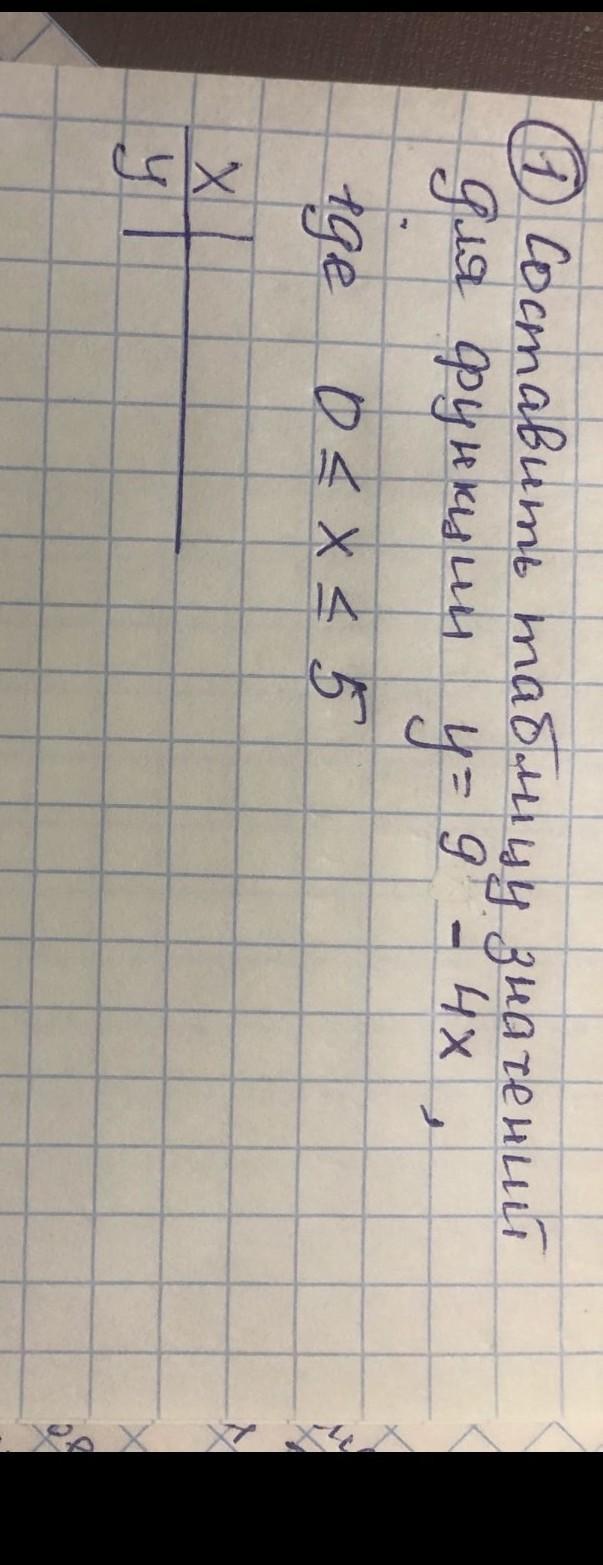 ① Составить таблицу значений
для функции y = 9 - 4x ,
где 0 ≤ x ≤ 5
x
y